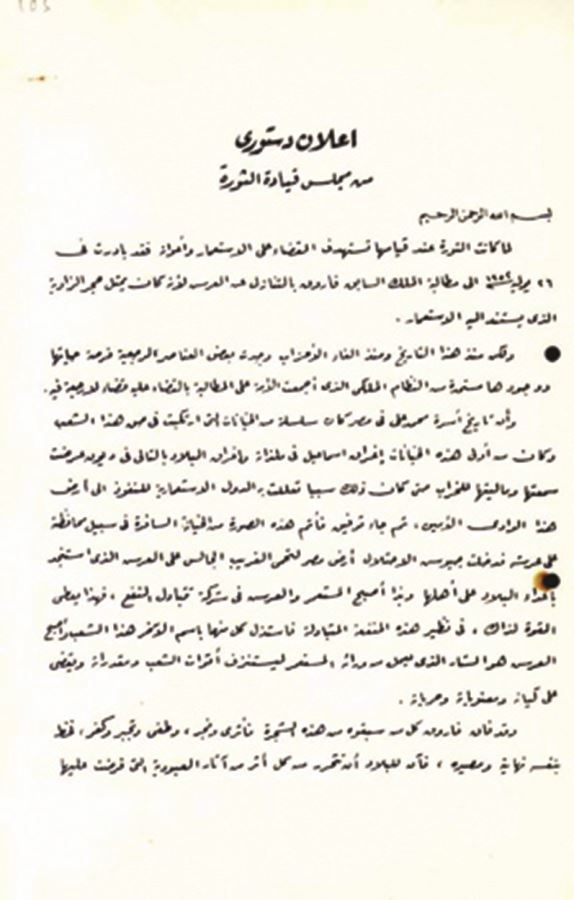 اعلان دستوري
من مجلس قيادة الثورة
بسم الله الرحمن الرحيم
لما كانت الثورة عند قيامها تستهدف القضاء على الاستعمار وأعوانه فقد بادرت في
٢٦ يوليه ١٩٥٢ الى مطالبة الملك السابق فاروق بالتنازل عن العرش لأنه كان يمثل حجر الزاوية
الذي يستند اليه الاستعمار .
ولكن منذ هذا التاريخ ومنذ الغاء الأحزاب وجدت بعض العناصر الرجعية فرصة حياتها
ووجودها مستمدة من النظام الملكي الذي أجمعت الأمة على المطالبة بالقضاء عليه قضاء لا رجعة فيه .
وأن تاريخ أسرة محمد على في مصر كان سلسلة من الخيانات التي ارتكبت في حق هذا الشعب
وكان من أولى هذه الخيانات إغراق اسماعيل في ملذاته وإغراق البلاد بالتالي في ديون عرضت
سمعتها وماليتها للخراب حتى كان ذلك سببا تعللت به الدول الاستعمارية للنفوذ الى أرض
هذا الوادي الأمين ، ثم جاء توفيق فأتم هذه الصورة من الخيانة السافرة في سبيل محافظته
على عرشه فدخلت جيوش الاحتلال أرض مصر لتحمي الغريب الجالس على العرش الذي استنجد
بأعداء البلاد على أهلها وبذا أصبح المستعمر والعرش في شركة تتبادل النفع ، فهذا يعطي
القوة لذاك ، في نظير هذه المنفعة المتبادلة فاستذل كل منهما باسم الآخر هذا الشعب وأصبح
العرش هو الستار الذي يعمل من ورائه المستعمر ليستنزف أقوات الشعب ومقدراته ويقضي
على كيانه ومعنوياته وحرياته .
وقد فاق فاروق كل من سبقوه من هذه الشجرة فأثرى وفجر ، وطغى وتجبر وكفر ، فخط
بنفسه نهايته ومصيره ، فآن للبلاد أن تتحرر من كل أثر من آثار العبودية التي فرضت عليها